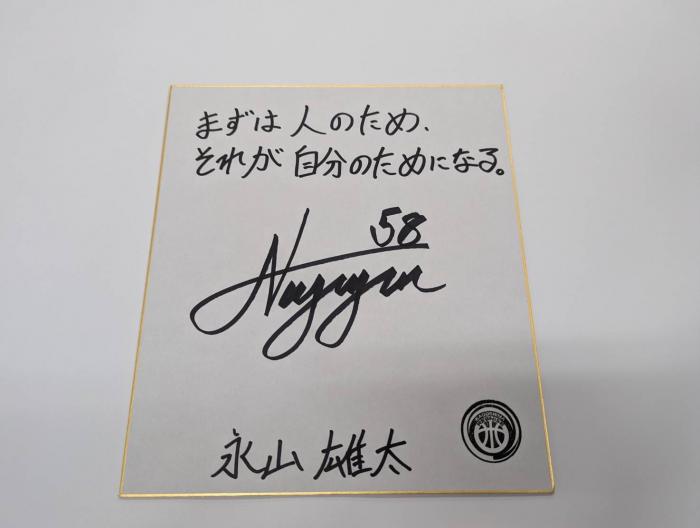 まずは 人のため、
それが 自分のためになる。
58
永山 雄太